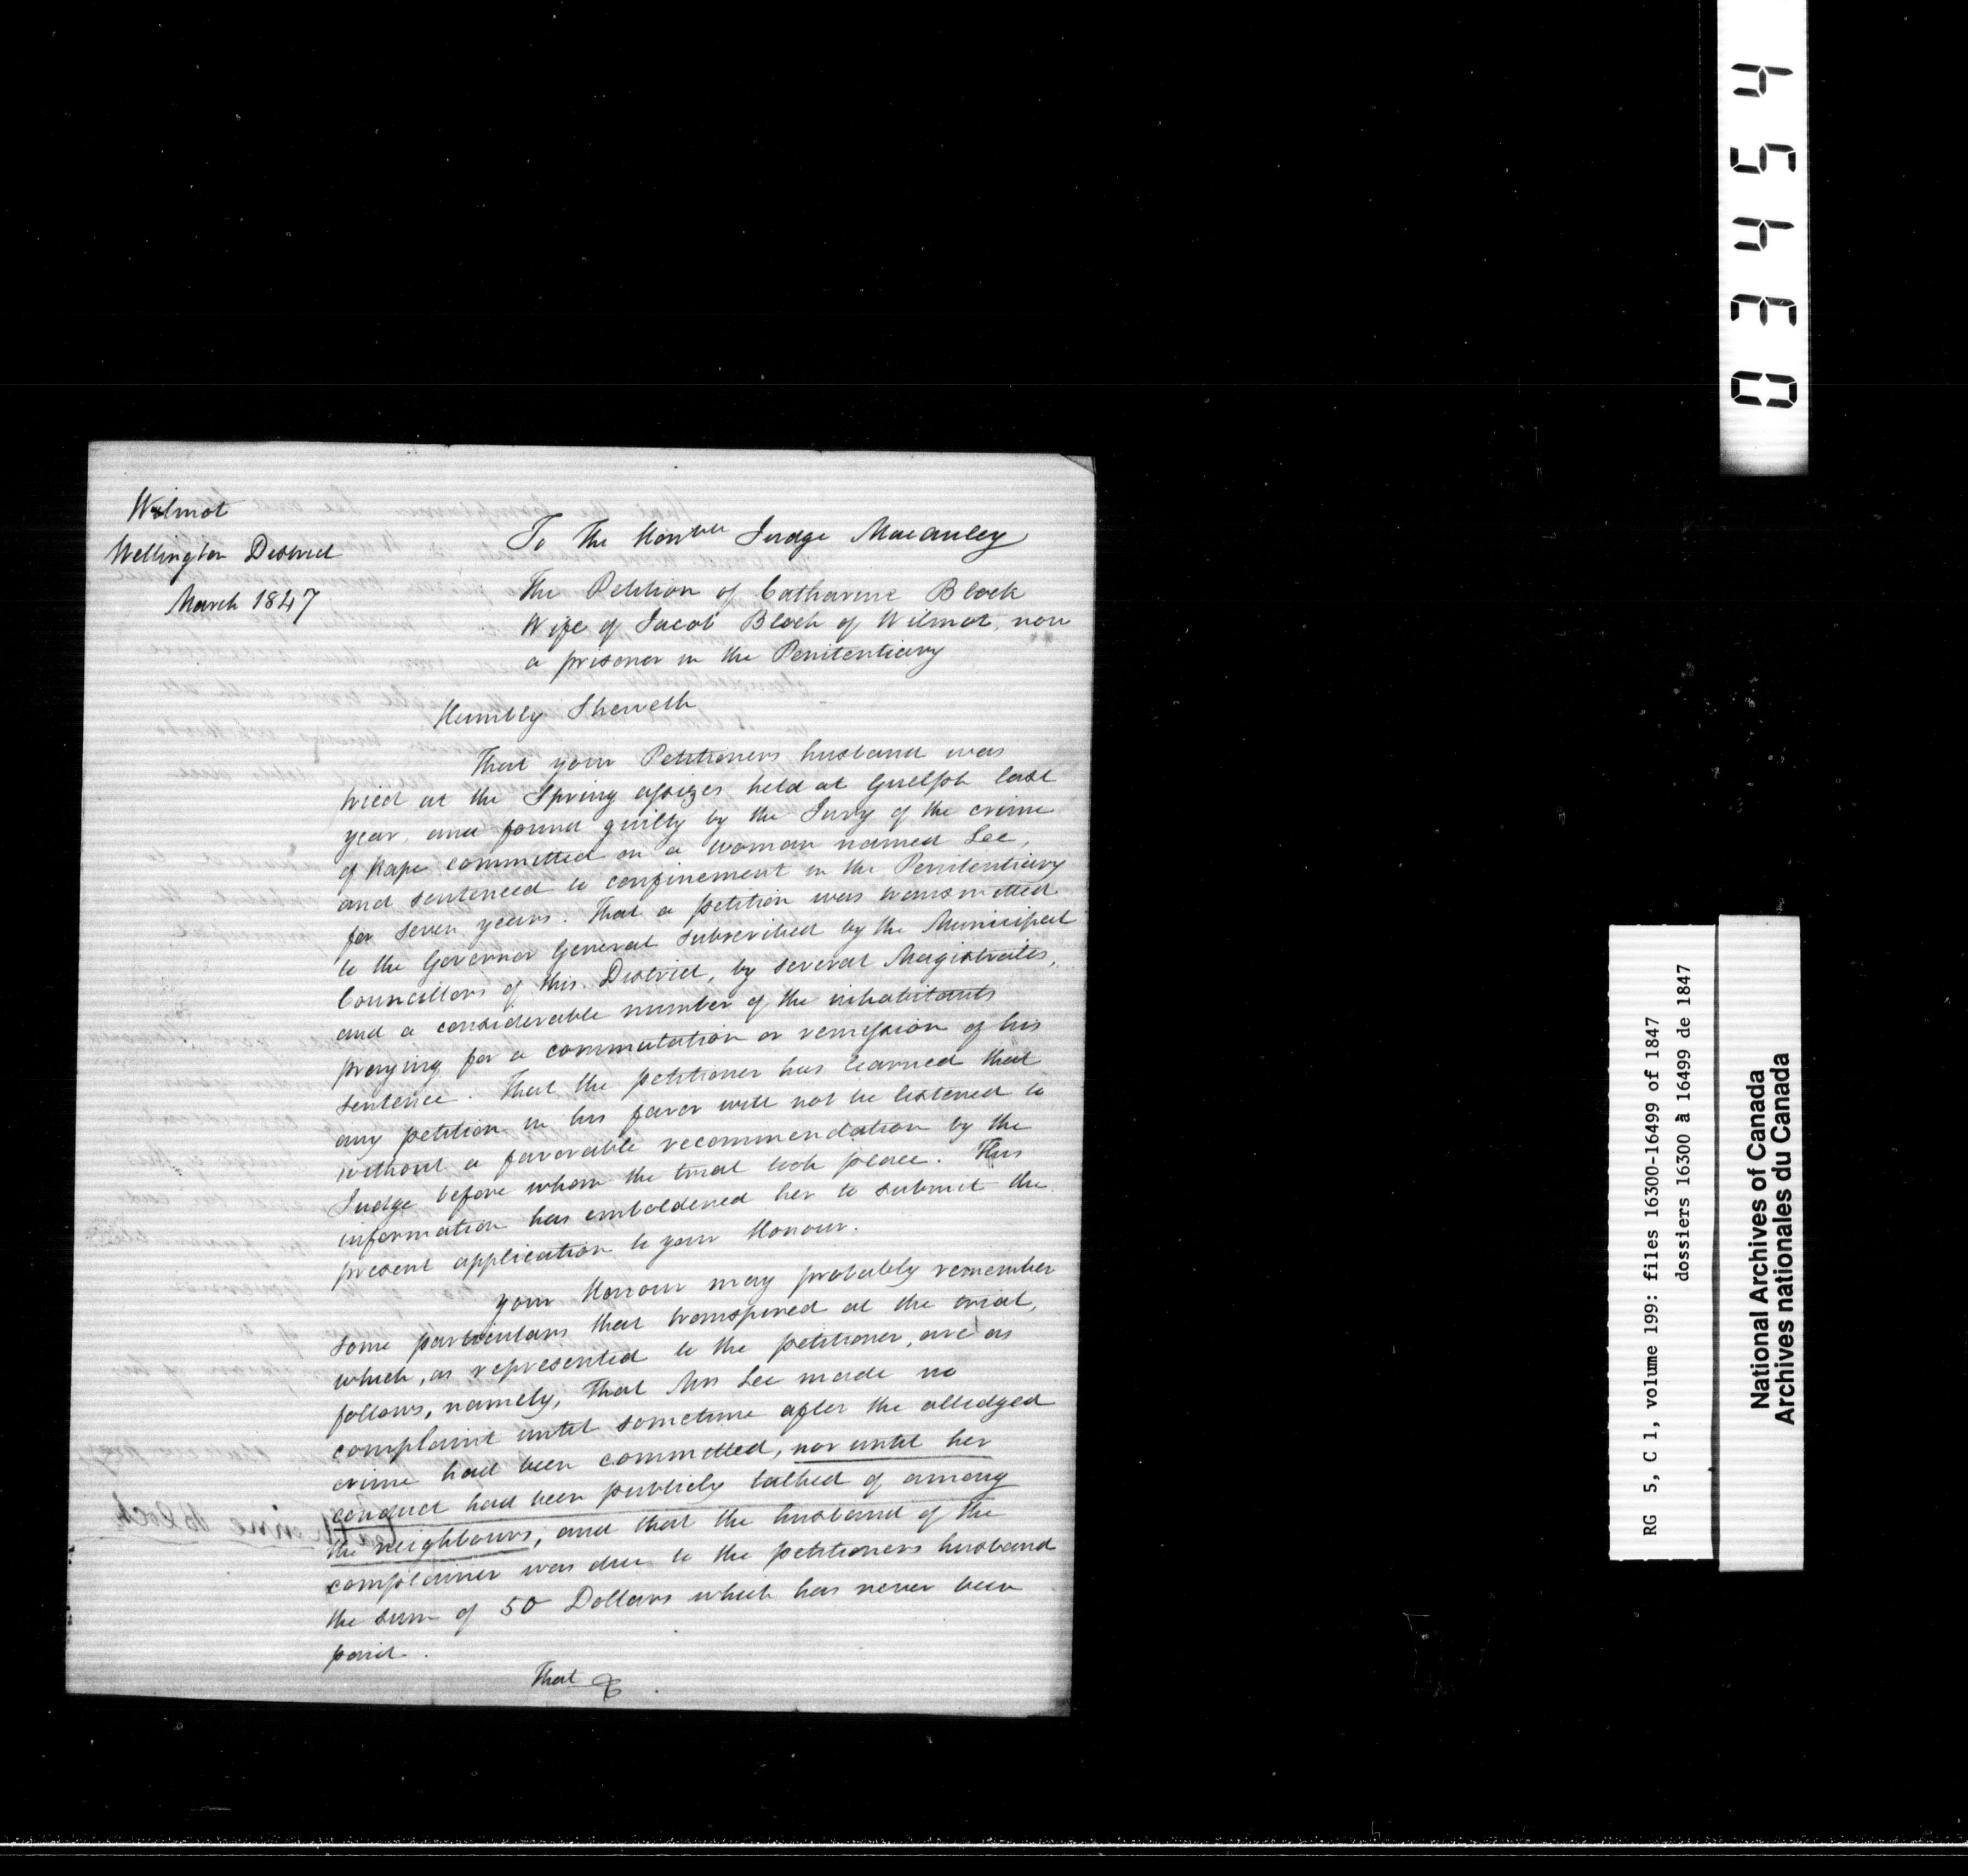 Wilmot
Wellington District
March 1847
To The Honble Judge Macauley
The Petition of Catharine Block
Wife of Jacob Block of Wilmot, now
a prisoner in the Penitentiary
Humbly Sheweth
That your Petitioners husband was
tried at the Spring assizes held at Guelph last
year, and found guilty by the Jury of the crime
of Rape committed on a woman named Lee,
and sentenced to confinement in the Penitentiary
for seven years. That a petition was transmitted
to the Governor General subscribed by the Municipal
Councillors of this District, by several Magistrates,
and a considerable number of the inhabitants
praying for a commutation or remission of his
sentence. That the petitioner has learned that
any petition in his favor will not be listened to
without a favorable recommendation by the
Judge before whom the trial took place. This
information has emboldened her to submit the
present application to your Honour.
Your Honour may probably remember
some particulars that transpired at the trial,
which, as represented to the petitioner, are as
follows, namely, That Mrs Lee made no
complaint until sometime after the alledged
crime had been committed, nor until her
conduct had been publicly talked of among
the neighbours, and that the husband of the
complainer was due to the petitioners husband
the sum of 50 Dollars which has never been
paid.
That
03454
RG 5, C 1, volume 199: files 16300-16499 of 1847
dossiers 16300 à 16499 de 1847
National Archives of Canada
Archives nationales du Canada